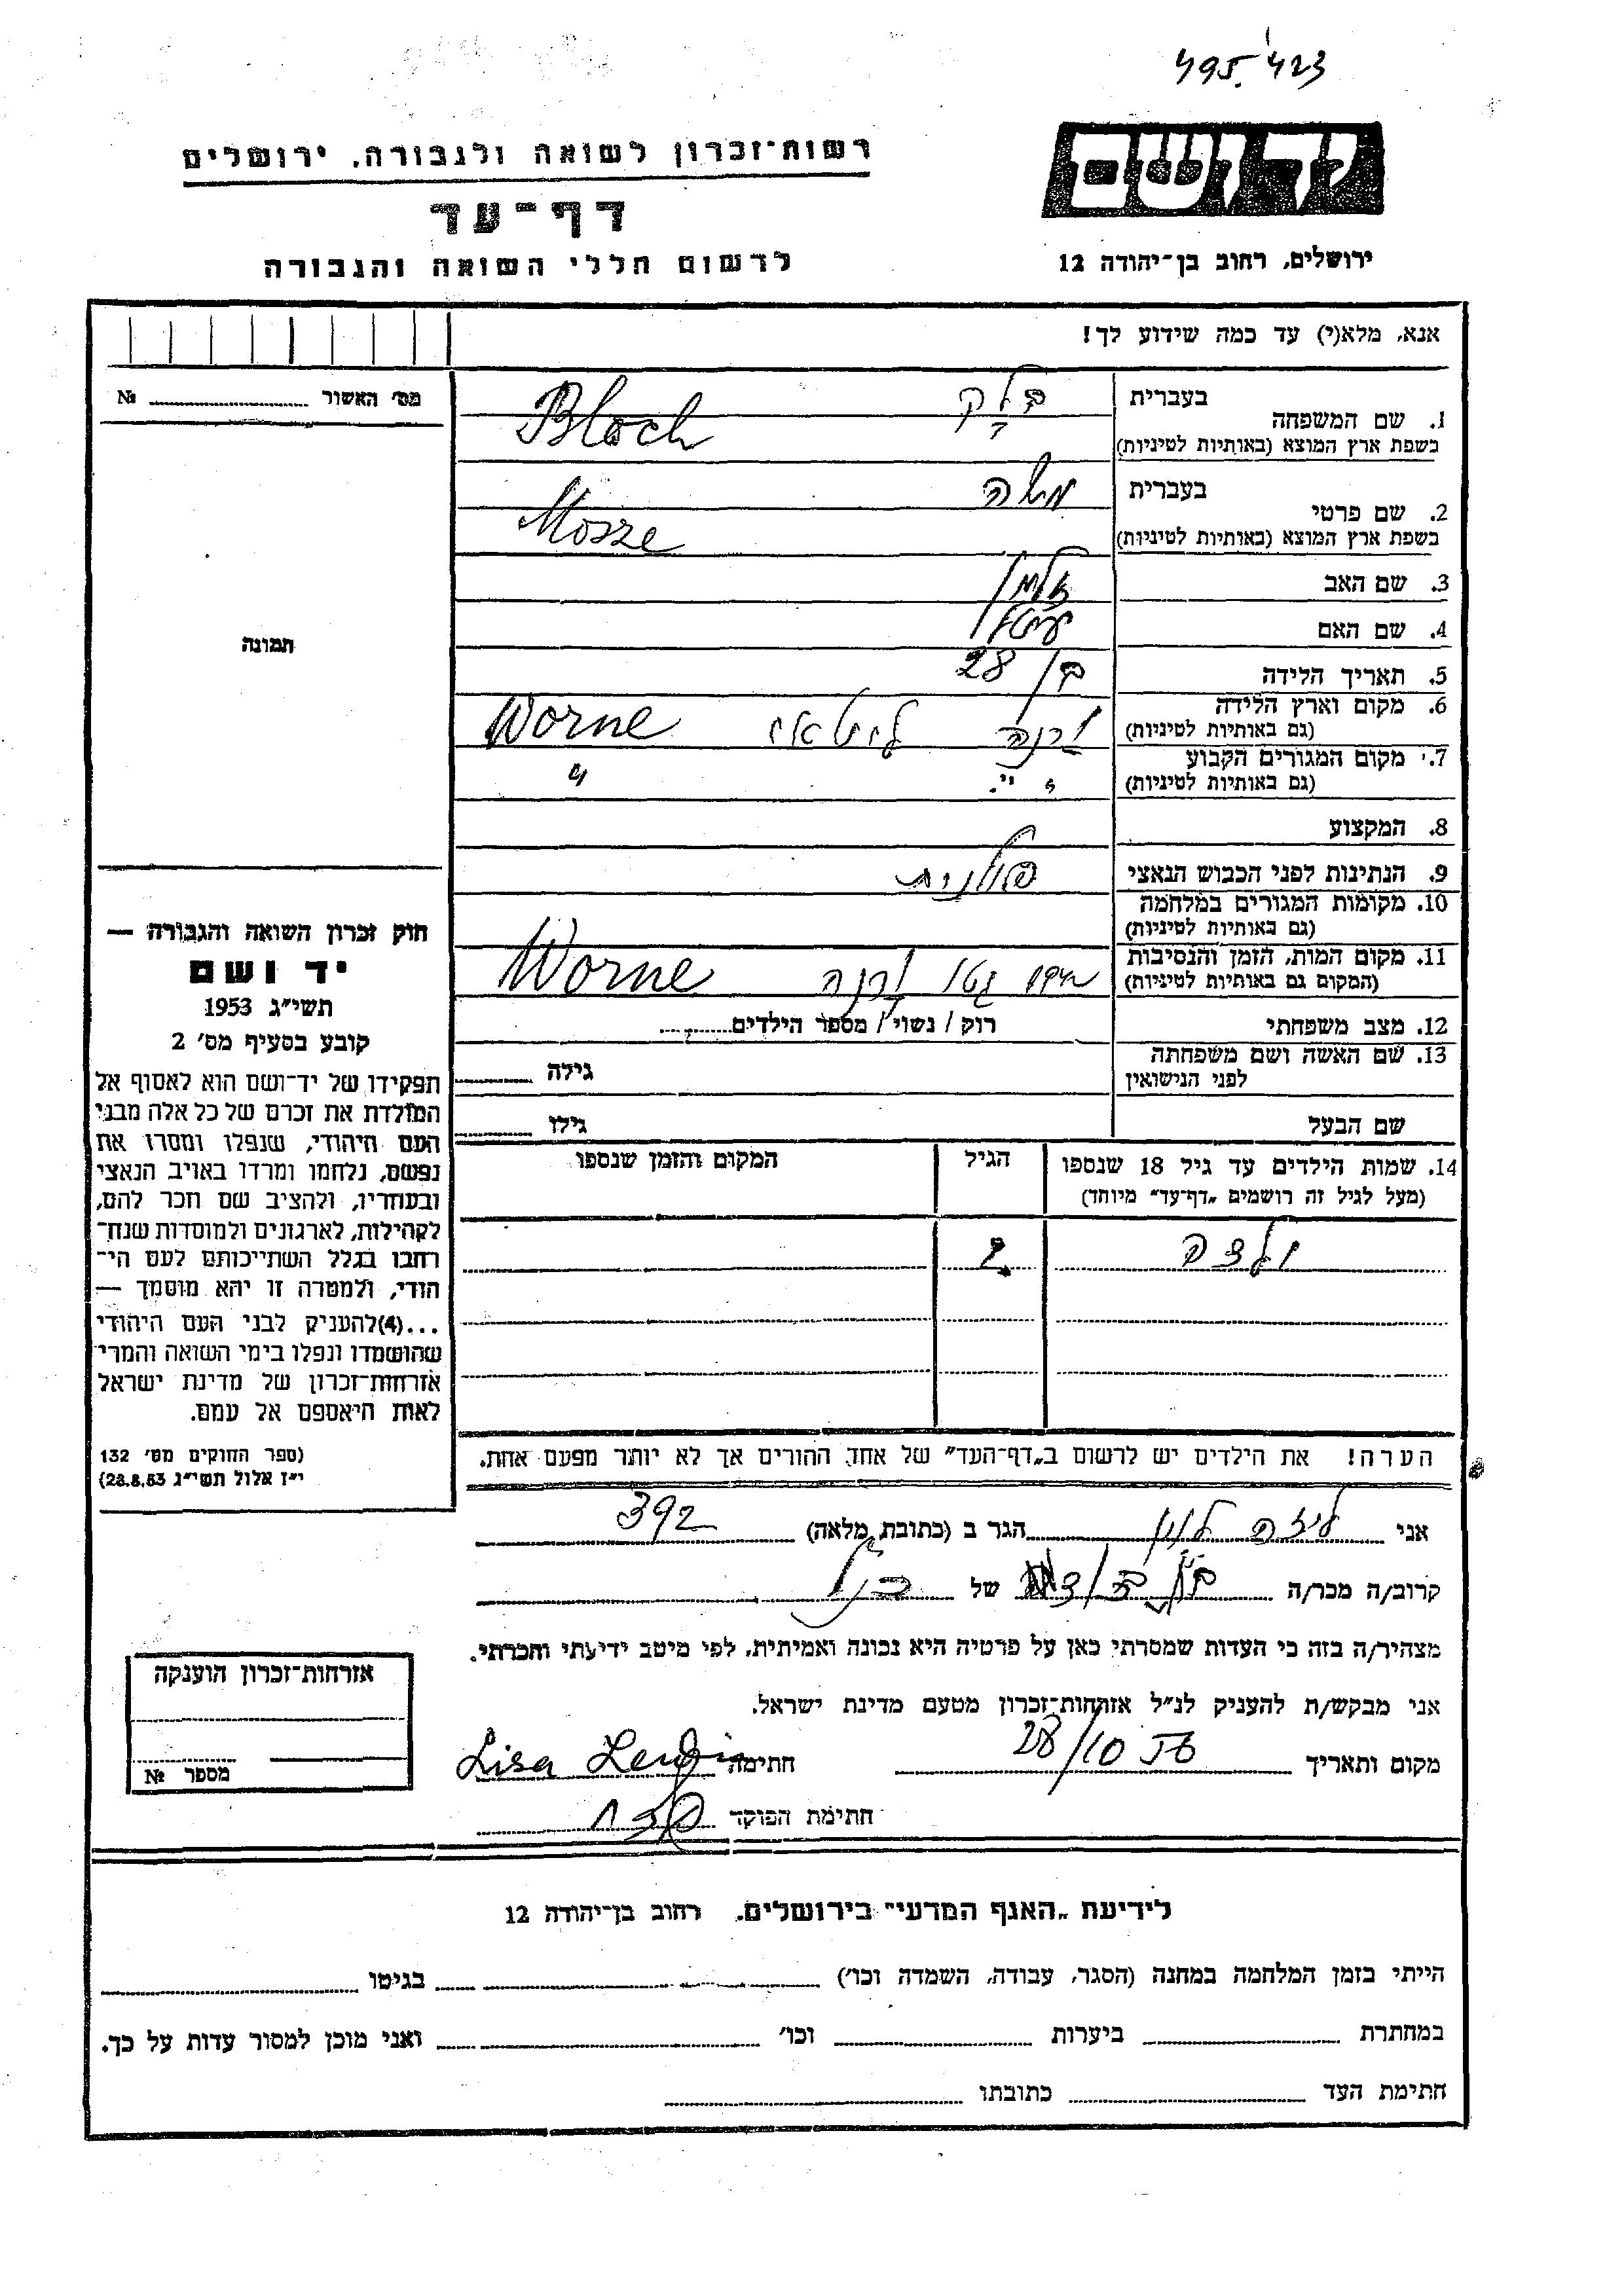 495.423
יד ושם
רשות־זכרון לשואה ולגבורה, ירושלים
דף־עד
לרשום חללי השואה והגבורה
ירושלים, רחוב בן־יהודה 12
אנא, מלא(י) עד כמה שידוע לך!
מס׳ האשור № ........
תמונה
1. שם המשפחה
בעברית בלק
בשפת ארץ המוצא (באותיות לטיניות) Bloch
2. שם פרטי
בעברית משה
בשפת ארץ המוצא (באותיות לטיניות) Mosze
3. שם האב זלמן
4. שם האם
5. תאריך הלידה בן 28
6. מקום וארץ הלידה (גם באותיות לטיניות) ורנה ליטא Worne
7. מקום המגורים הקבוע (גם באותיות לטיניות) " "
8. המקצוע
9. הנתינות לפני הכבוש הנאצי
10. מקומות המגורים במלחמה (גם באותיות לטיניות)
11. מקום המות, הזמן והנסיבות (המקום גם באותיות לטיניות) גטו ורנה Worne
12. מצב משפחתי רוק / נשוי / מספר הילדים........
13. שם האשה ושם משפחתה לפני הנישואין גילה ........
שם הבעל גילו ........
14. שמות הילדים עד גיל 18 שנספו
(מעל לגיל זה רושמים „דף־עד” מיוחד)
הגיל
המקום והזמן שנספו
2
הערה! את הילדים יש לרשום ב„דף־העד” של אחד ההורים אך לא יותר מפעם אחת.
חוק זכרון השואה והגבורה —
יד ושם
תשי״ג 1953
קובע בסעיף מס׳ 2
תפקידו של יד־ושם הוא לאסוף אל
המולדת את זכרם של כל אלה מבני
העם היהודי, שנפלו ומסרו את
נפשם, נלחמו ומרדו באויב הנאצי
ובעוזריו, ולהציב שם וזכר להם,
לקהילות, לארגונים ולמוסדות שנח־
רבו בגלל השתייכותם לעם הי־
הודי, ולמטרה זו יהא מוסמך —
...(4)להעניק לבני העם היהודי
שהושמדו ונפלו בימי השואה והמרי
אזרחות־זכרון של מדינת ישראל
לאות היאספם אל עמם.
(ספר החוקים מס׳ 132
י״ז אלול תשי״ג 28.8.53)
אני ליזה לוין הגר ב (כתובת מלאה) 392
קרוב/ה מכר/ה של הנ״ל
מצהיר/ה בזה כי העדות שמסרתי כאן על פרטיה היא נכונה ואמיתית, לפי מיטב ידיעתי והכרתי.
אני מבקש/ת להעניק לנ״ל אזרחות־זכרון מטעם מדינת ישראל.
מקום ותאריך 28/10 חתימה Lisa Lewin
חתימת הפוקד
אזרחות־זכרון הוענקה
מספר №
לידיעת „האגף המדעי” בירושלים, רחוב בן־יהודה 12
הייתי בזמן המלחמה במחנה (הסגר, עבודה, השמדה וכו׳) ........ בגיטו ........
במחתרת ........ ביערות ........ וכו׳ ........ ואני מוכן למסור עדות על כך.
חתימת העד ........ כתובתו ........